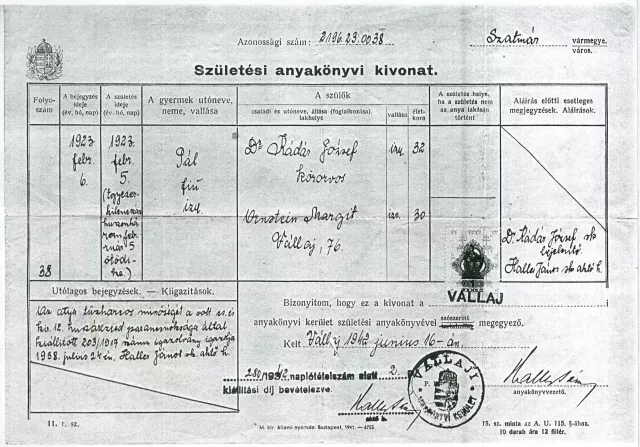 Azonossági szám: 2196.23.0038
Szatmár vármegye.
város.
Születési anyakönyvi kivonat.
Folyó-
szám
A bejegyzés
ideje
(év, hó, nap)
A születés
ideje
(év, hó, nap)
A gyermek utóneve,
neme, vallása
A szülők
családi és utóneve, állása (foglalkozása),
lakhelye
vallása
élet-
kora
A születés helye,
ha a születés nem
az anya lakásán
történt
Aláírás előtti esetleges
megjegyzések. Aláírások.
38
1923
febr.
6.
1923
febr.
5
(Egyezer-
kilencszáz
huszonhá-
rom feb-
ruár 5
ötödi-
ke.)
Pál
fiú
izr.
Dr Kádár József
körorvos
izr.
32
Ornstein Margit
Vállaj, 76.
izr.
30
Dr. Kádár József sk
bejelentő
Halles János sk akv h.
VÁLLAJ
Utólagos bejegyzések. — Kiigazítások.
Az atya tűzharcos minőségét a volt cs. és
kir. 12. huszárezred parancsnoksága által
kiállított 203/1917 számú igazolvány igazolja
1938. július 24 én. Halles János sk akv h.
Bizonyítom, hogy ez a kivonat a
anyakönyvi kerület születési anyakönyvével szószerint megegyező.
Kelt Vállaj 1942 junius 16-án.
280/1942 naplótételszám alatt 2.
kiállítási díj bevételezve.
VÁLLAJI
ANYAKÖNYVI KERÜLET
anyakönyvvezető.
11. r. sz.
M. kir. állami nyomda. Budapest, 1941. — 6753.
15. sz. minta az A. U. 115. §-ához.
10 darab ára 12 fillér.